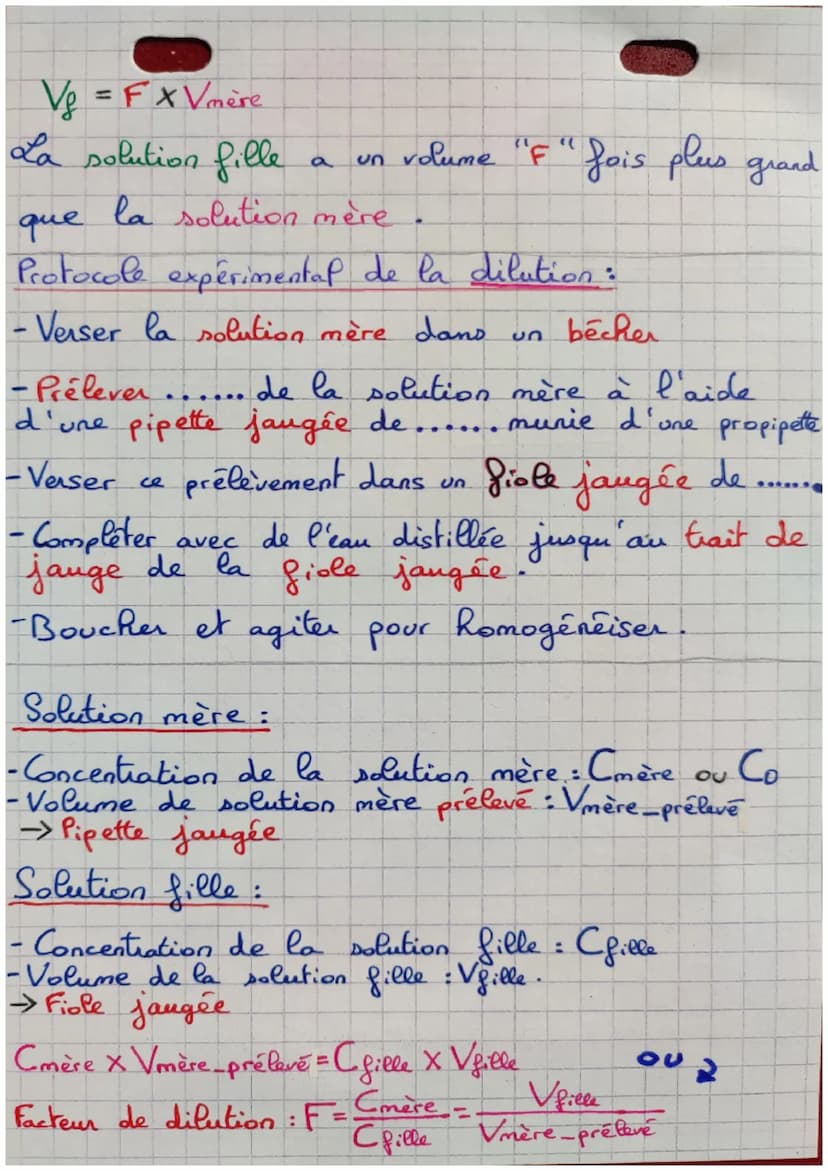 Vf = F x Vmère
La solution fille a un volume "F" fois plus grand
que la solution mère.
Protocole expérimental de la dilution :
- Verser la solution mère dans un bécher
- Prélever ...... de la solution mère à l'aide
d'une pipette jaugée de ...... munie d'une propipette
- Verser ce prélèvement dans un fiole jaugée de .......
- Compléter avec de l'eau distillée jusqu'au trait de
jauge de la fiole jaugée.
- Boucher et agiter pour homogénéiser.
Solution mère :
- Concentration de la solution mère : Cmère ou C0
- Volume de solution mère prélevé : Vmère_prélevé
→ Pipette jaugée
Solution fille :
- Concentration de la solution fille : Cfille
- Volume de la solution fille : Vfille.
→ Fiole jaugée
Cmère x Vmère_prélevé = Cfille x Vfille ou
Facteur de dilution : F = Cmère / Cfille = Vfille / Vmère_prélevé